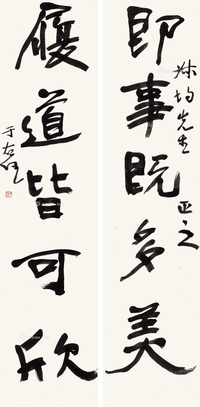 即事既多美
林均先生正之
履道皆可欣
于右任